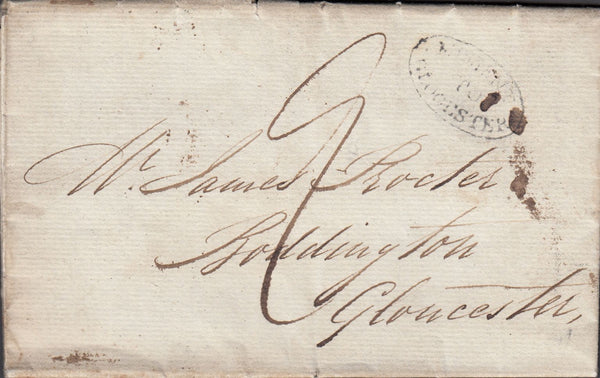 GLOCESTER
2
Mr. James Procter
Boddington
Gloucester,